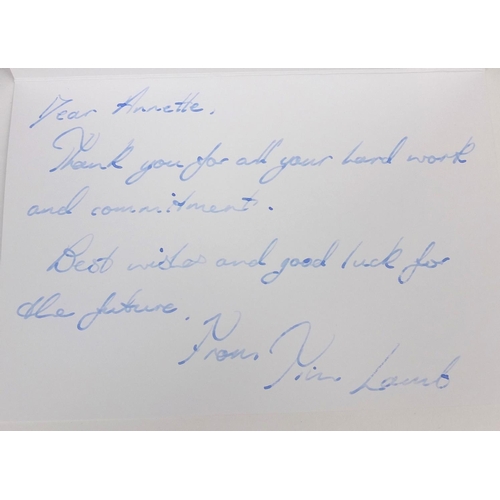 Dear Annette,
Thank you for all your hard work
and commitment.
Best wishes and good luck for
the future.
From Kim Lamb